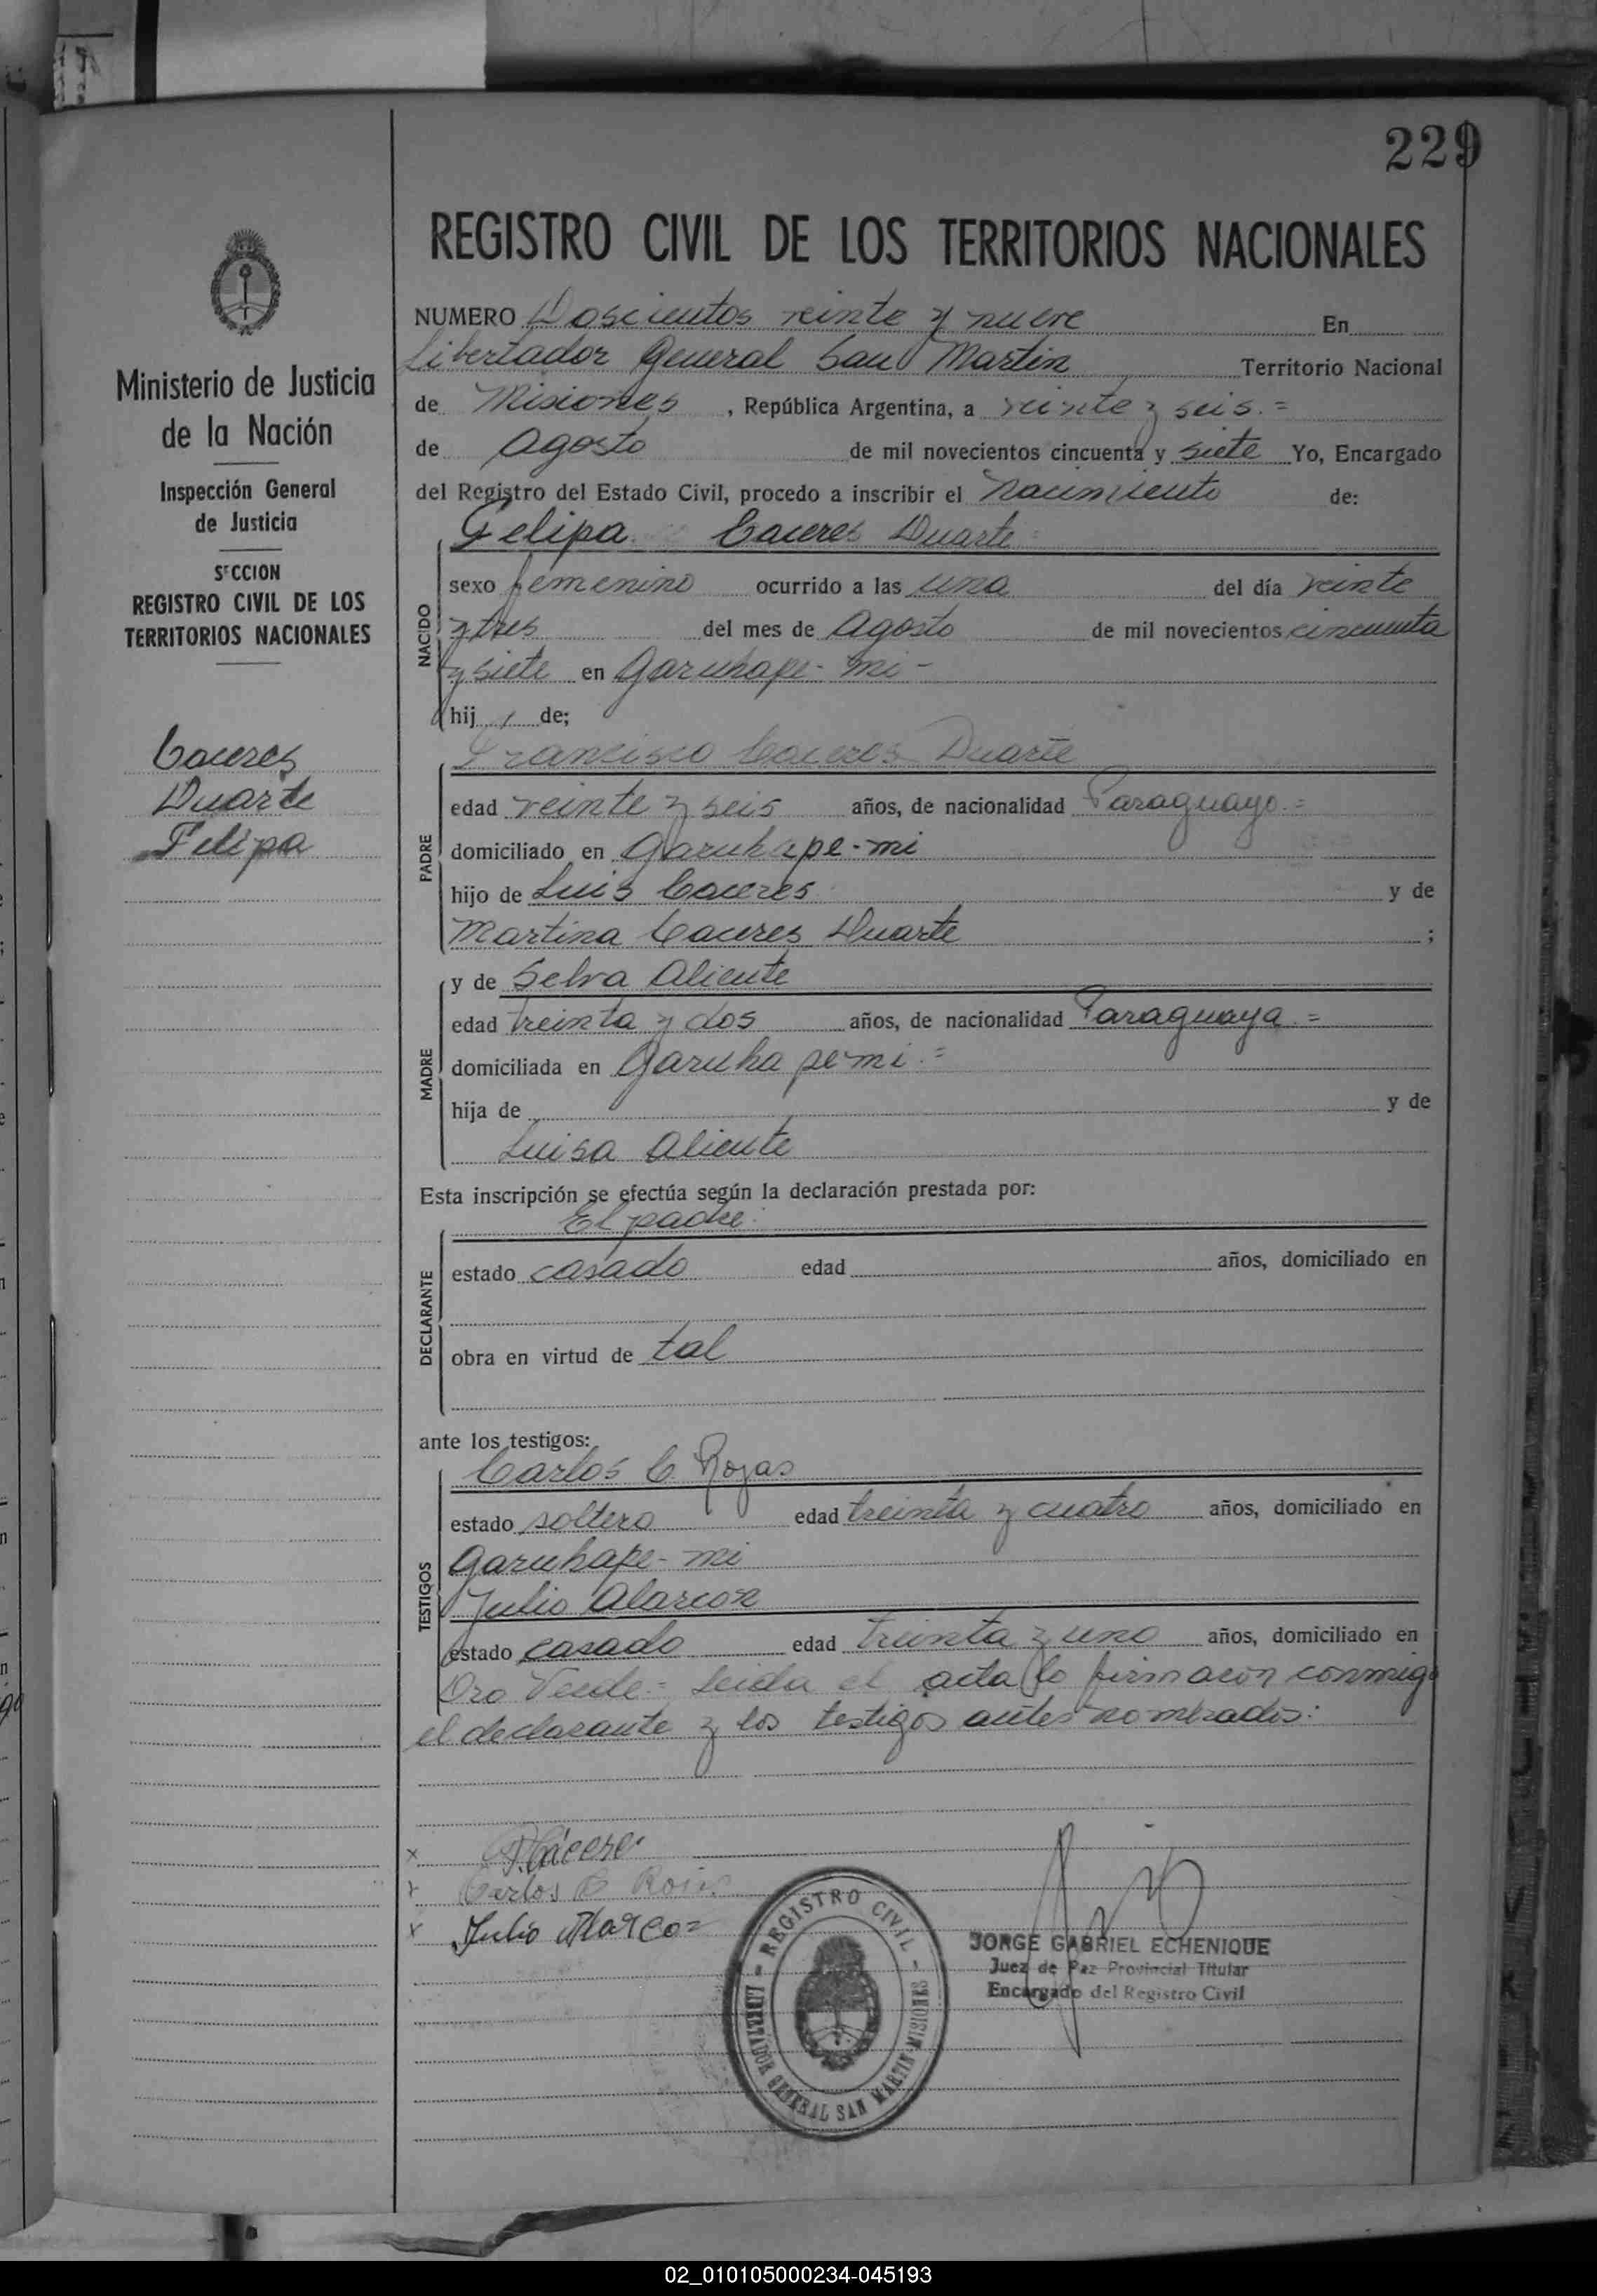 229
REGISTRO CIVIL DE LOS TERRITORIOS NACIONALES
Ministerio de Justicia
de la Nación
Inspección General
de Justicia
SECCION
REGISTRO CIVIL DE LOS
TERRITORIOS NACIONALES
Caceres
Duarte
Felipa
NUMERO Doscientos veinte y nueve En
Libertador General San Martin Territorio Nacional
de Misiones, República Argentina, a veinte y seis.=
de Agosto de mil novecientos cincuenta y siete Yo, Encargado
del Registro del Estado Civil, procedo a inscribir el Nacimiento de:
NACIDO
Felipa Caceres Duarte
sexo femenino ocurrido a las una del día veinte
y tres del mes de Agosto de mil novecientos cincuenta
y siete en Garuhape-mi-
hij de;
PADRE
Francisco Caceres Duarte
edad veinte y seis años, de nacionalidad Paraguayo.=
domiciliado en Garuhape-mi
hijo de Luis Caceres y de
Martina Caceres Duarte ;
MADRE
y de Selva Aliente
edad treinta y dos años, de nacionalidad Paraguaya.=
domiciliada en Garuhape-mi.=
hija de y de
Luisa Aliente
Esta inscripción se efectúa según la declaración prestada por:
DECLARANTE
El padre.
estado casado edad años, domiciliado en
obra en virtud de tal
ante los testigos:
TESTIGOS
Carlos C Rojas
estado soltero edad treinta y cuatro años, domiciliado en
Garuhape-mi
Julio Alarcon
estado casado edad treinta y uno años, domiciliado en
Oro Verde.= Leida el acta lo firmaron conmigo
el declarante y los testigos antes nombrados:
x F. Cáceres
x Carlos C Rojas
x Julio Alarcon
REGISTRO CIVIL
LIBERTADOR GENERAL SAN MARTIN MISIONES
JORGE GABRIEL ECHENIQUE
Juez de Paz Provincial Titular
Encargado del Registro Civil
02_010105000234-045193